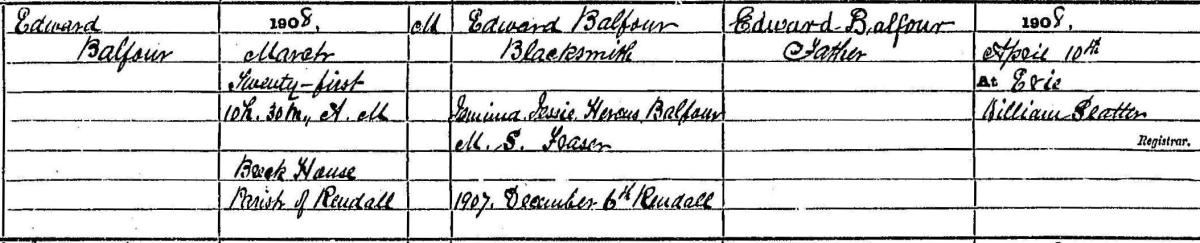 Edward
Balfour
1908.
March
Twenty-first
10h. 30m., A. M
Breck House
Parish of Rendall
M
Edward Balfour
Blacksmith
Jemima Jessie Hercus Balfour
M. S. Feaser
1907. December 6th Rendall
Edward Balfour
Father
1908.
April 10th
At Evie
William Peatter
Registrar.